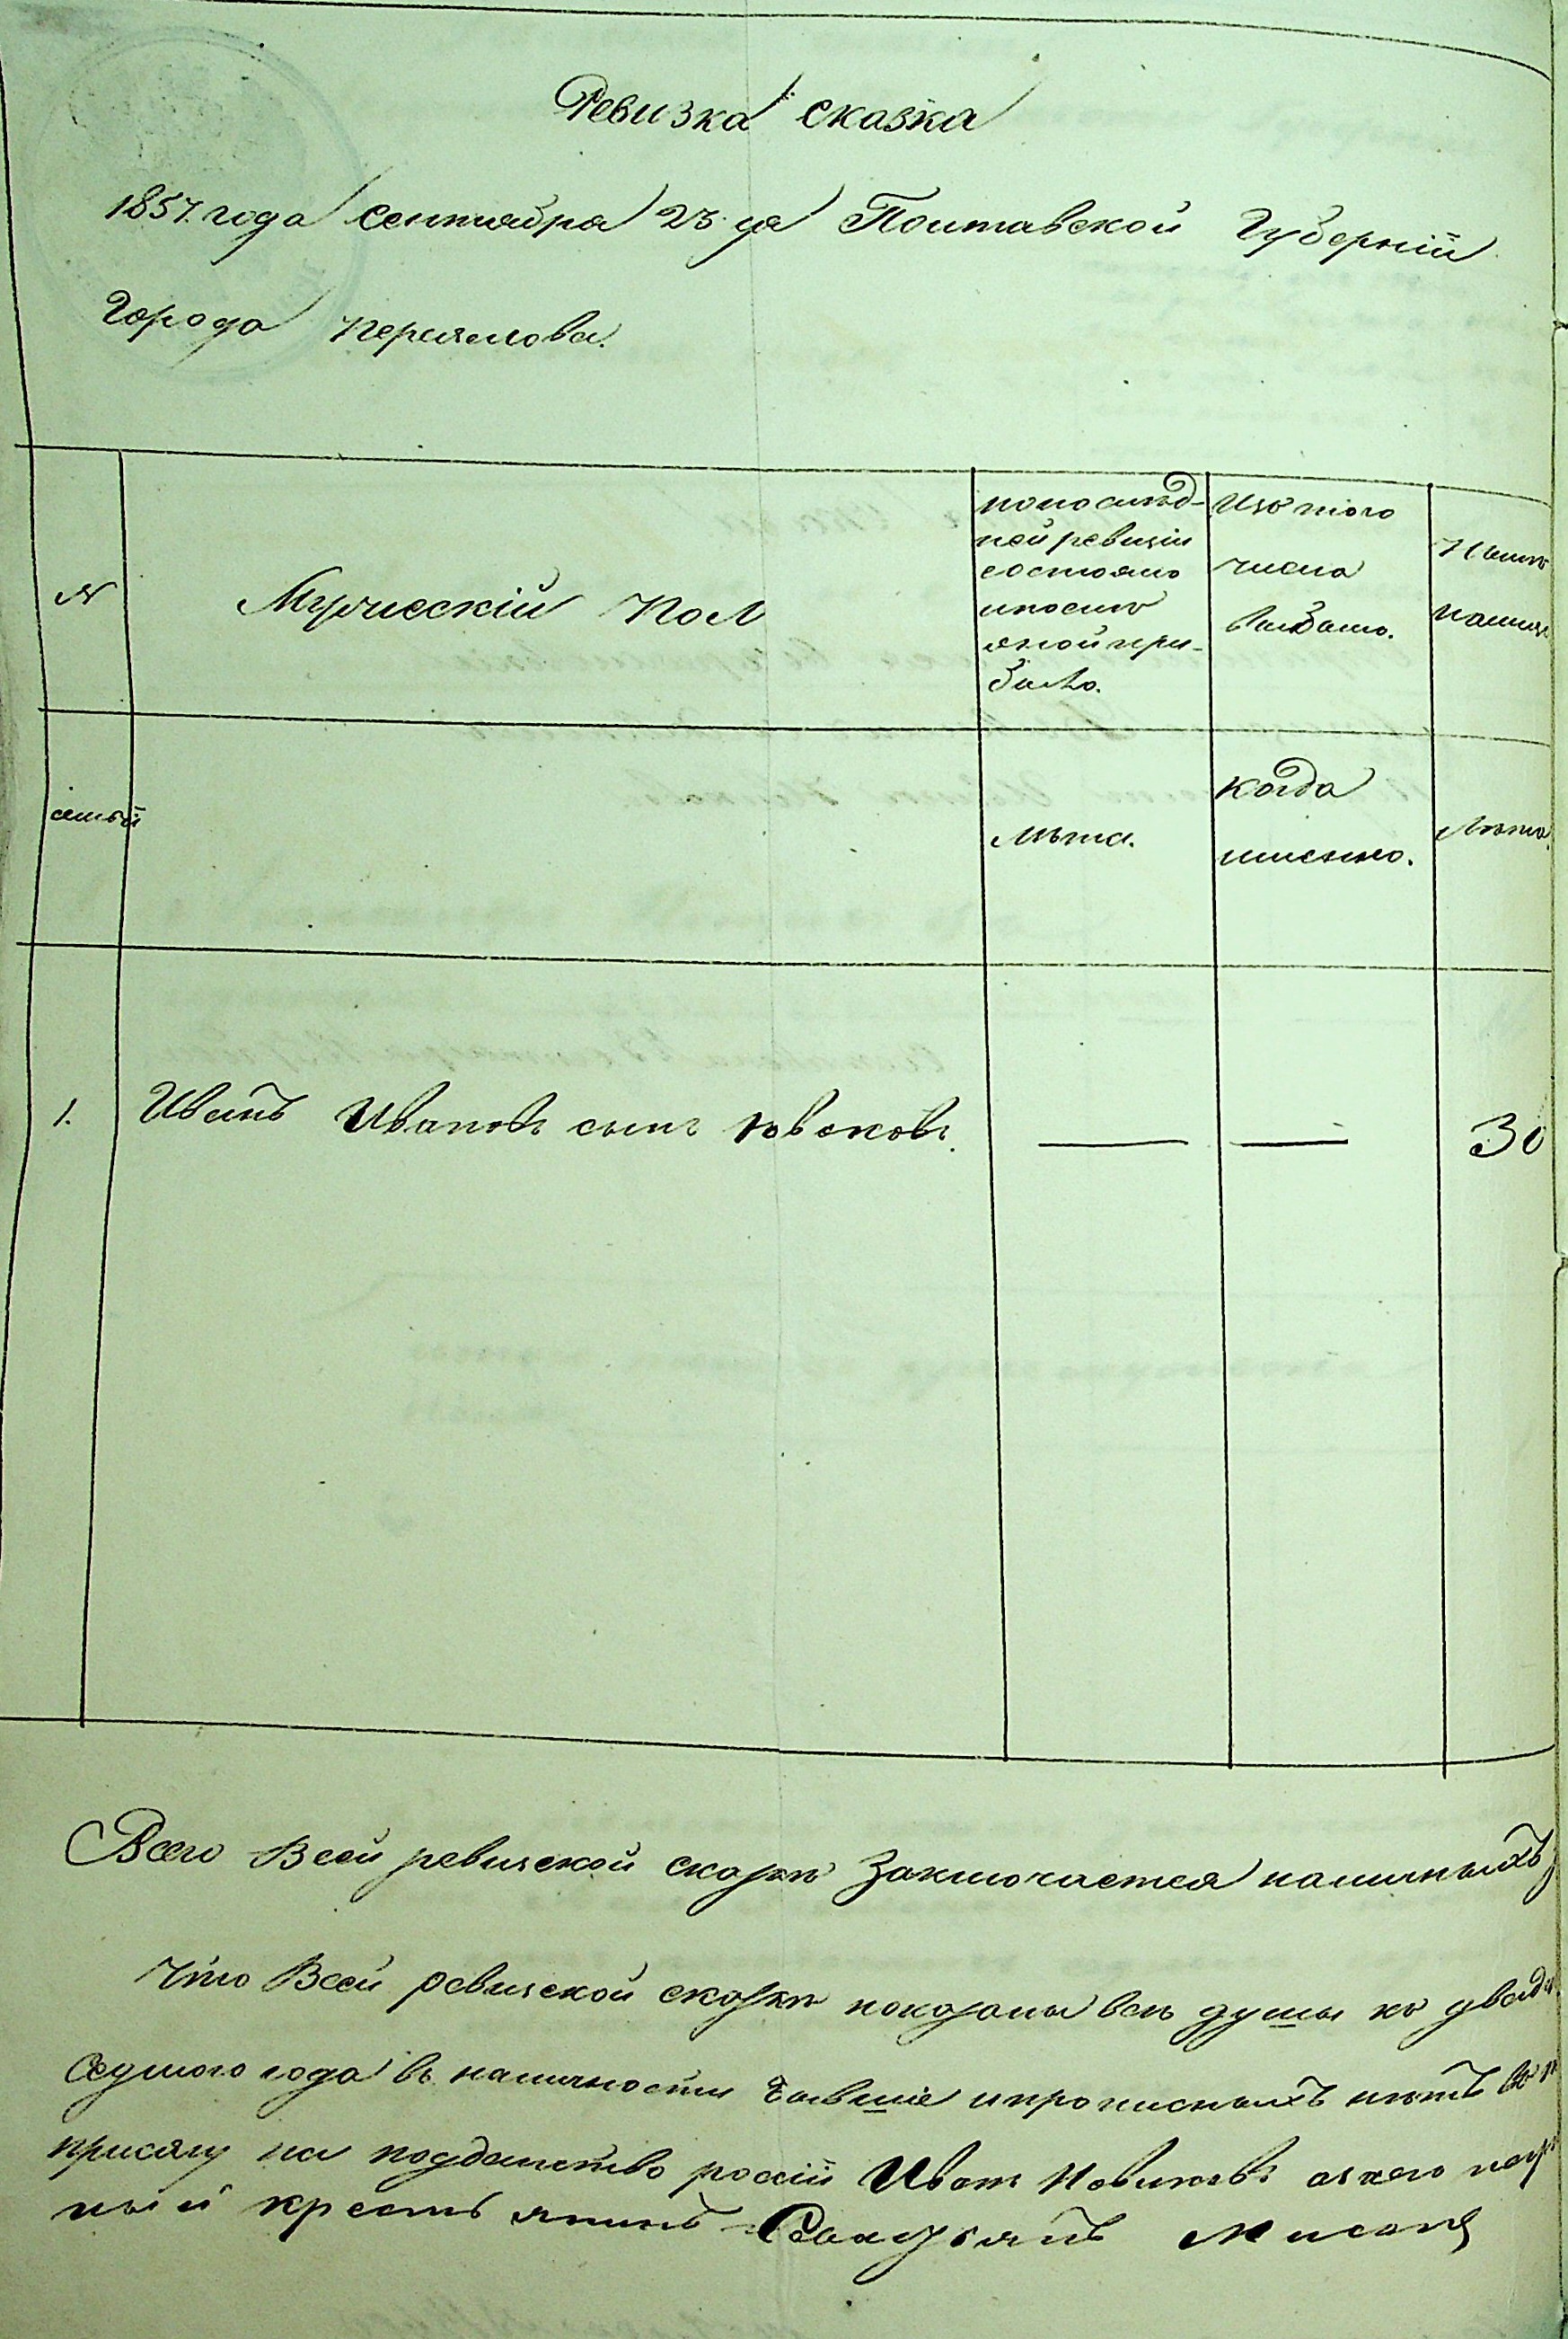 Ревизка сказка
1857. года сентября 23 дня Полтавской Губерніи
Города Переяслова.
№
Мужескій пол
попослѣд-
ней ревизіи
состояло
ипослѣ
оной при-
было.
Изъ того
числа
выбыло.
Нынѣ
налицо
семьи
лѣта.
когда
именно.
лѣта.
1.
Иванъ Ивановъ сынъ Новековъ.
30
Всего Всей ревизской сказкѣ Заключается наличныхъ
Что Всей ревизской сказкѣ показаны всѣ душы
седмого года въ наличности бывшіе ипрописныхъ нѣтъ
присягу на подданство росіи Иванъ Новиковъ азасего
ный крестьянинъ